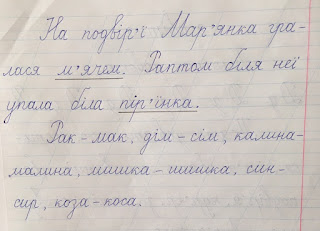 На подвір'ї Мар'янка гра-
лася м'ячем. Раптом біля неї
упала біла пір'їнка.
Рак - мак, дім - сім, калина-
малина, мишка - шишка, син-
сир, коза - коса.